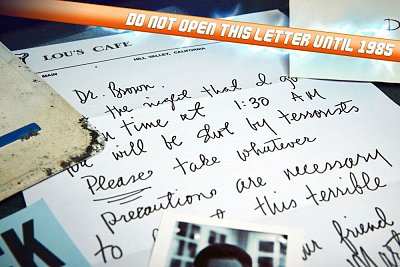 DO NOT OPEN THIS LETTER UNTIL 1985
LOU'S CAFE
HILL VALLEY, CALIFORNIA
MAIN
D
Dr. Brown,
the night that I go
in time at 1:30 AM
will be shot by terrorists
Please take whatever
precautions are necessary
to this terrible
friend
K